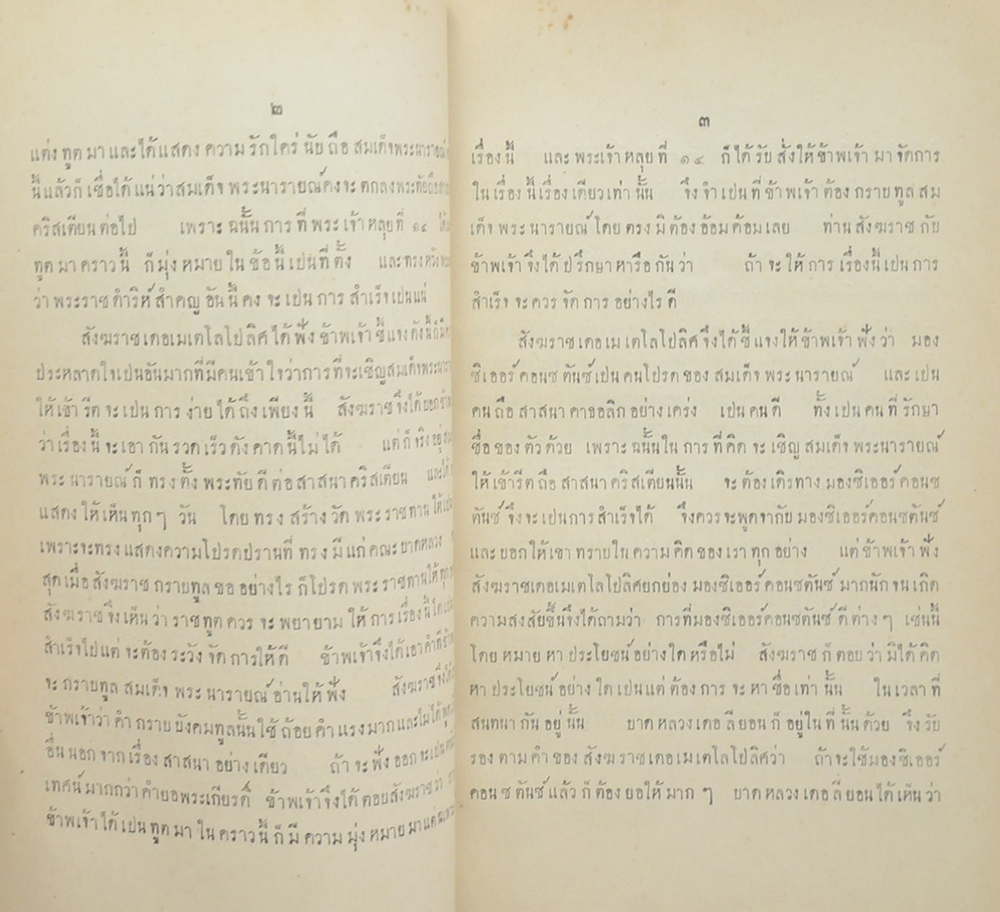 ๒
แต่ง ทูต มา และ ได้ แสดง ความ รัก ใคร่ นับ ถือ สมเด็จพระนารายณ์
นี้ แล้ว ก็ เชื่อ ได้ แน่ ว่า สมเด็จ พระ นารายณ์ คงจะ ตกลงพระทัยถือ
คริสเตียน ต่อ ไป เพราะ ฉนั้น การ ที่ พระ เจ้า หลุย ที่ ๑๔
ทูต มา คราว นี้ ก็ มุ่ง หมาย ใน ข้อ นี้ เป็น ที่ ตั้ง และ ทรง
ว่า พระราช ดำริห์ สำคญ อัน นี้ คง จะ เป็น การ สำเร็จ เป็นแน่
สังฆราช เดอเมเตโลโปลิศ ได้ ฟัง ข้าพเจ้า ชี้แจง ดังนี้
ประหลาดใจเป็นอันมากที่มีคนเข้าใจว่าการที่จะเชิญสมเด็จ
ให้ เข้า รีต จะ เป็น การ ง่าย ได้ ถึง เพียง นี้ สังฆราช จึงได้
ว่า เรื่อง นี้ จะ เอา กัน รวด เร็ว ดัง คาด นี้ ไม่ ได้ แต่ ก็ จริง อยู่
พระ นารายณ์ ก็ ทรง ตั้ง พระทัย ดี ต่อ สาสนา คริสเตียน และได้
แสดง ให้ เห็น ทุก ๆ วัน โดย ทรง สร้าง วัด พระ ราชทาน
เพราะจะทรง แสดงความโปรดปรานที่ ทรง มี แก่ คณะ บาดหลวง
สุด เมื่อ สังฆราช กราบทูล ขอ อย่างไร ก็ โปรด พระ ราชทาน
สังฆราช จึง เห็น ว่า ราชทูต ควร จะ พยายาม ให้ การ เรื่อง นี้
สำเร็จไป แต่ จะ ต้อง ระวัง จัด การ ให้ ดี ข้าพเจ้าจึงได้เอา
จะ กราบทูล สมเด็จ พระ นารายณ์ อ่าน ให้ ฟัง สังฆราช
ข้าพเจ้าว่า คำ กราบ บังคมทูลนั้น ใช้ ถ้อย คำ แรง มาก และไม่ได้
อื่น นอก จาก เรื่อง สาสนา อย่าง เดียว ถ้า จะ ฟัง ออก จะ
เทศน์ มากกว่า คำยอพระเกียรติ์ ข้าพเจ้าจึงได้ ตอบ สังฆราช ว่า
ข้าพเจ้า ได้ เป็น ทูต มา ใน คราว นี้ ก็ มี ความ มุ่ง หมาย มา
๓
เรื่อง นี้ และ พระเจ้า หลุย ที่ ๑๔ ก็ ได้ รับ สั่ง ให้ ข้าพเจ้า มา จัดการ
ใน เรื่อง นี้ เรื่อง เดียว เท่า นั้น จึง จำ เป็น ที่ ข้าพเจ้า ต้อง กราบทูล สม
เด็จ พระ นารายณ์ โดย ตรง มิ ต้อง อ้อม ค้อม เลย ท่าน สังฆราช กับ
ข้าพเจ้า จึงได้ ปรึกษา หารือ กัน ว่า ถ้า จะ ให้ การ เรื่องนี้ เป็น การ
สำเร็จ จะ ควร จัด การ อย่างไร ดี
สังฆราช เดอ เม เตโลโปลิศ จึงได้ ชี้ แจง ให้ ข้าพเจ้า ฟัง ว่า มอง
ซิเออร์ คอนซ ตันซ์ เป็น คนโปรด ของ สมเด็จ พระ นารายณ์ และ เป็น
คน ถือ สาสนา คาธอลิก อย่าง เคร่ง เป็น คน ดี ทั้ง เป็น คน ที่ รักษา
ชื่อ ของ ตัว ด้วย เพราะ ฉนั้น ใน การ ที่ คิด จะ เชิญ สมเด็จ พระนารายณ์
ให้ เข้ารีต ถือ สาสนา คริสเตียนนั้น จะ ต้อง เดิรทาง มองซิเออร์ คอนซ
ตันซ์ จึง จะ เป็นการ สำเร็จได้ จึงควรจะพูดจากับ มองซิเออร์คอนซตันซ์
และ บอก ให้ เขา ทราบ ใน ความ คิด ของ เรา ทุก อย่าง แต่ ข้าพเจ้า ฟัง
สังฆราชเดอเมเตโลโปลิศยกย่อง มองซิเออร์ คอนซตันซ์ มากนัก จน เกิด
ความสงสัยขึ้นจึงได้ถามว่า การที่มองซิเออร์คอนซตันซ์ ดี ต่าง ๆ เช่นนี้
โดย หมาย หา ประโยชน์ อย่าง ใด หรือไม่ สังฆราช ก็ ตอบ ว่า มิได้ คิด
หา ประโยชน์ อย่าง ใด เป็นแต่ ต้อง การ จะ หา ชื่อ เท่า นั้น ใน เวลา ที่
สนทนา กัน อยู่ นั้น บาด หลวง เดอ ลี ยอน ก็ อยู่ ใน ที่ นั้น ด้วย จึง รับ
รอง ตาม คำ ของ สังฆ ราช เดอ เม เต โล โปลิศ ว่า ถ้า จะ ใช้ มอง ซิเออร์
คอน ซ ตันซ์ แล้ว ก็ ต้อง ยอ ให้ มาก ๆ บาด หลวง เดอ ลี ยอน ได้ เห็น ว่า